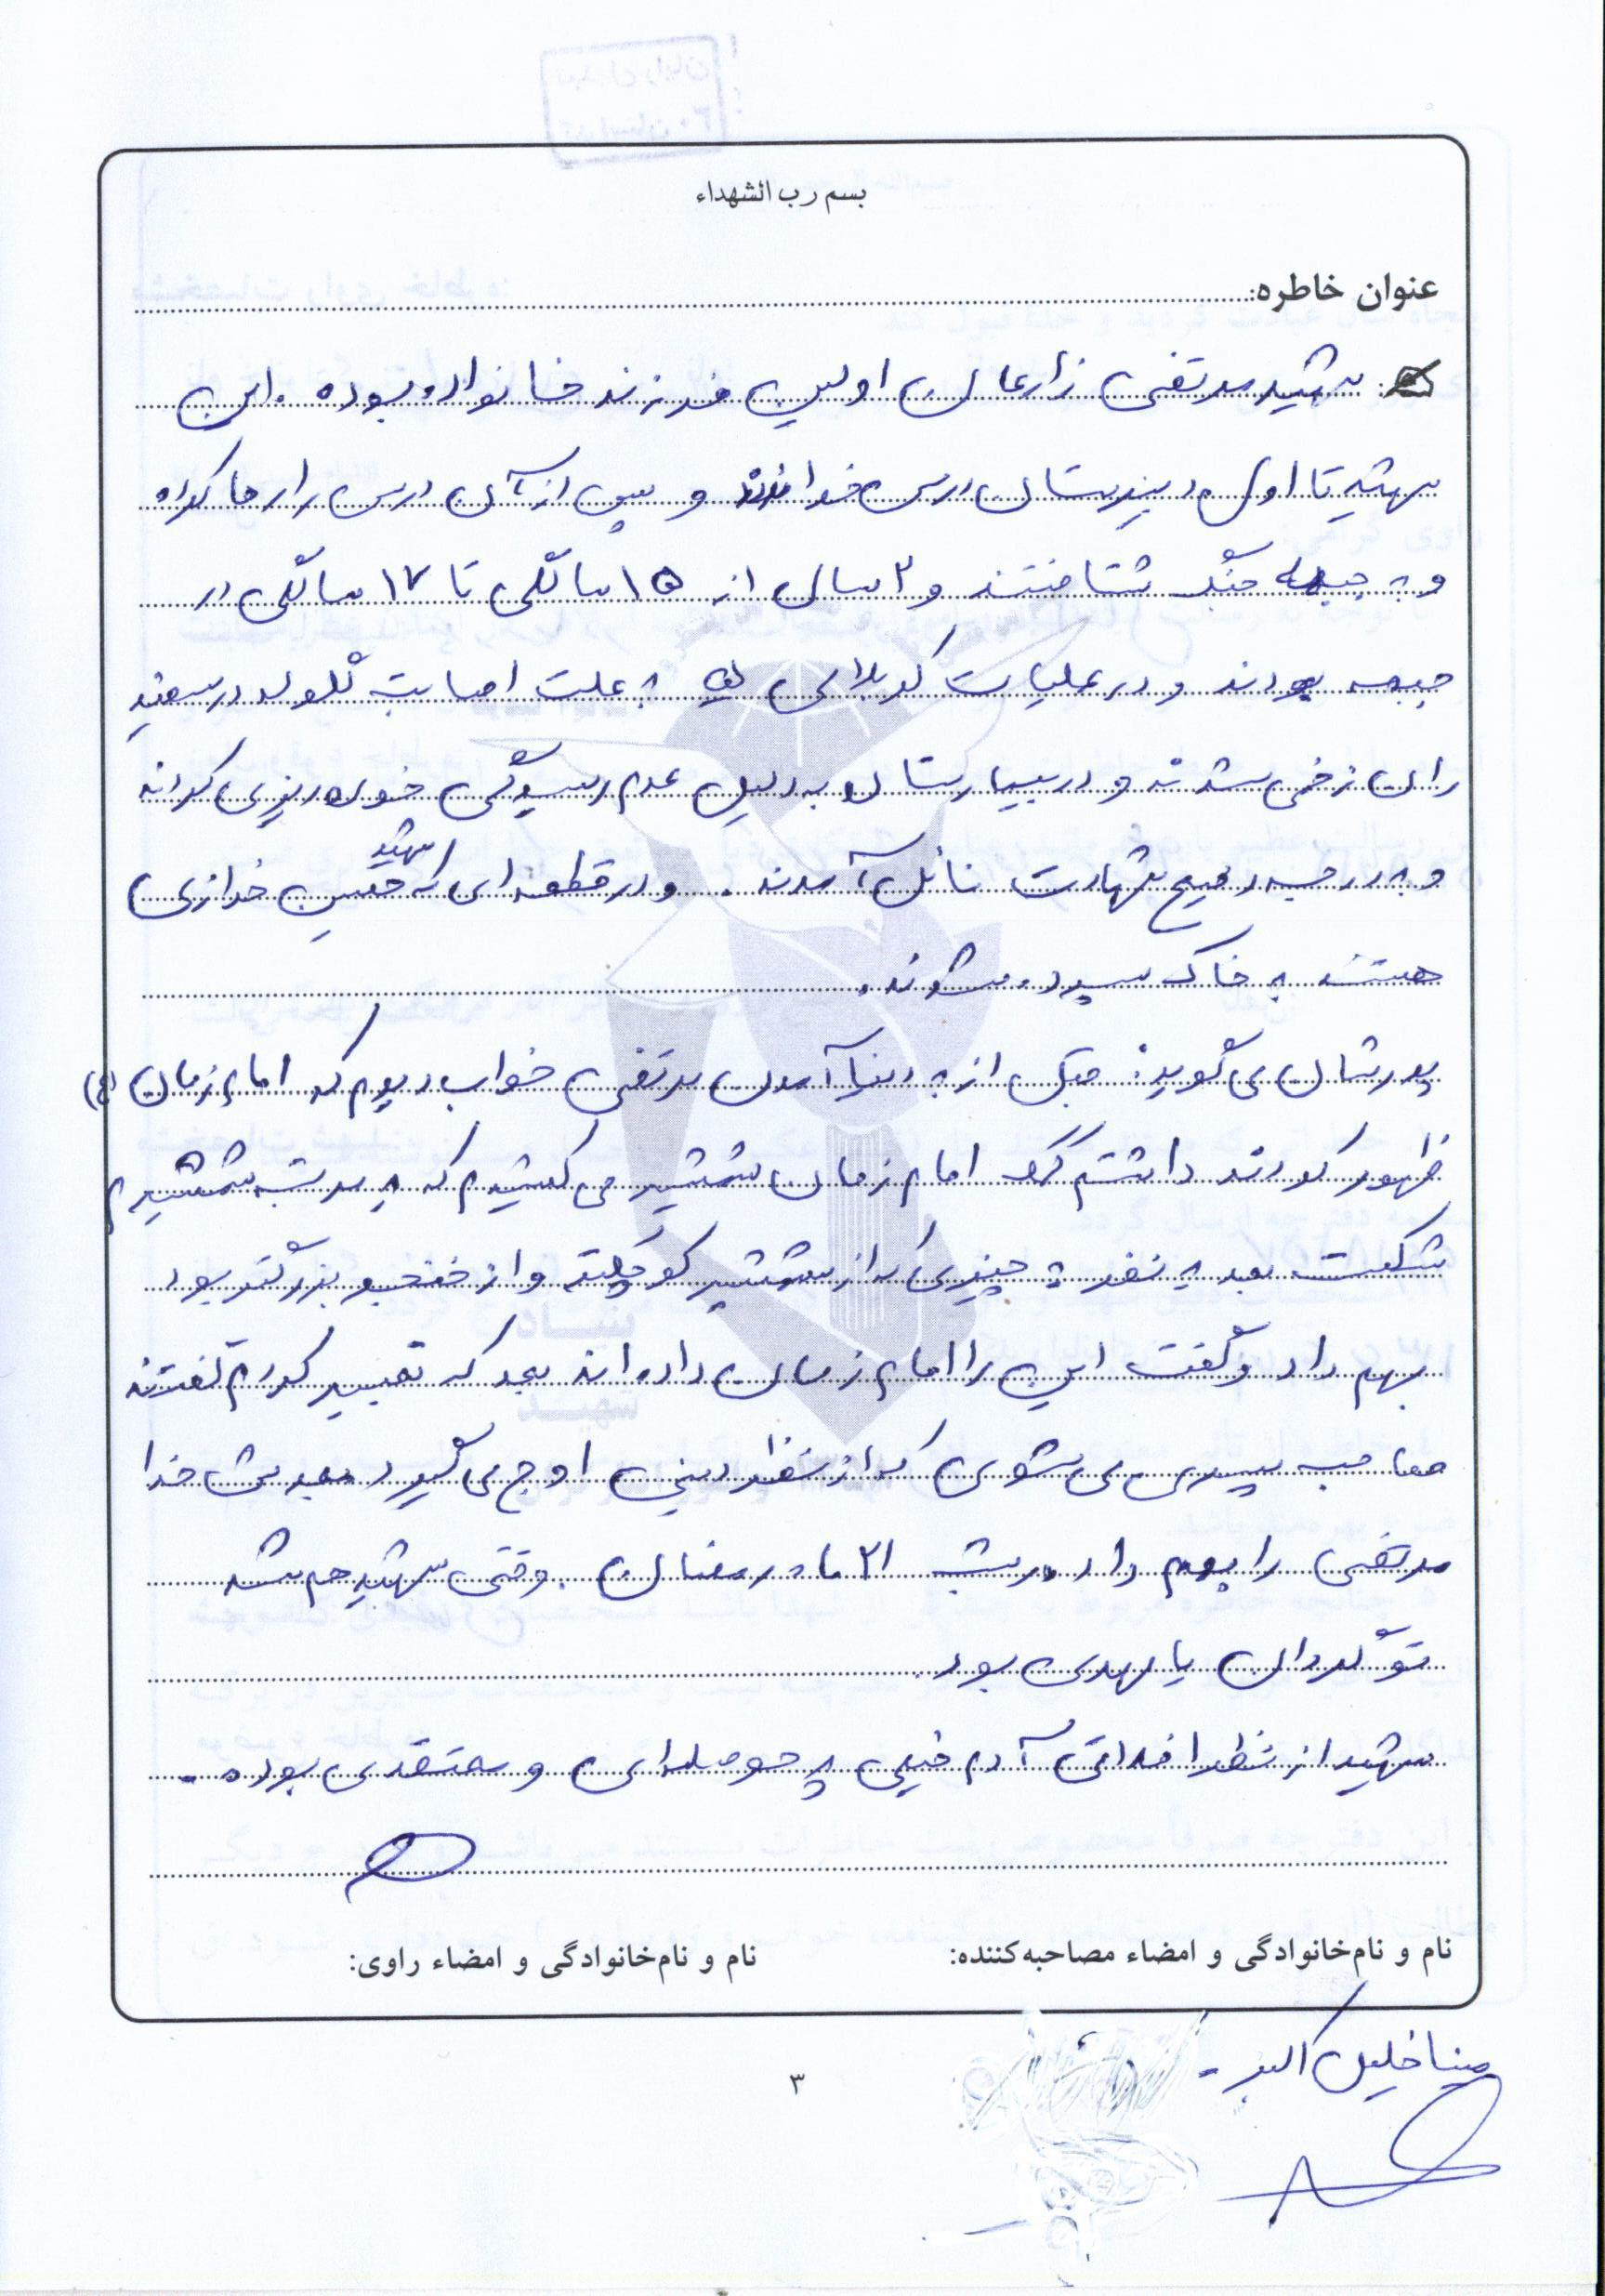 بسم رب الشهداء
عنوان خاطره:
شهید مرتضی زارعان اولین فرزند خانواده بوده. این
شهید تا اول دبیرستان درس خواندند و پس از آن درس را رها کرده
و به جبهه جنگ شتافتند و ۲ سال از ۱۵ سالگی تا ۱۷ سالگی در
جبهه بودند و در عملیات کربلای به علت اصابت گلوله در سفید
ران زخمی شدند و در بیمارستان به دلیل عدم رسیدگی خونریزی کرده
و به درجه رفیع شهادت نائل آمدند. و در قطعه‌ای که شهید حسین خرازی
هستند به خاک سپرده می‌شوند.
پدرشان می‌گوید: قبل از به دنیا آمدن مرتضی خواب دیدم که امام زمان (عج)
ظهور کردند داشتم کمک امام زمان شمشیر می‌کشیدم که یه مرتبه شمشیرم
شکست بعد یه نفر یه چیزی که از شمشیر کوچکتر و از خنجر بزرگتر بود
بهم داد و گفت این را امام زمان داده‌اند بعد که تعبیر کردم گفتند
صاحب پسری می‌شوی که از نظر دینی اوج می‌گیرد بعدش خدا
مرتضی را بهم داد در شب ۲۱ ماه رمضان. وقتی شهید هم شد
تو گردان یا مهدی بود.
شهید از نظر اخلاقی آدم خیلی پر حوصله‌ای و معتقدی بوده.
نام و نام‌خانوادگی و امضاء مصاحبه‌کننده:
نام و نام‌خانوادگی و امضاء راوی:
مینا خلیل اکبر
۳